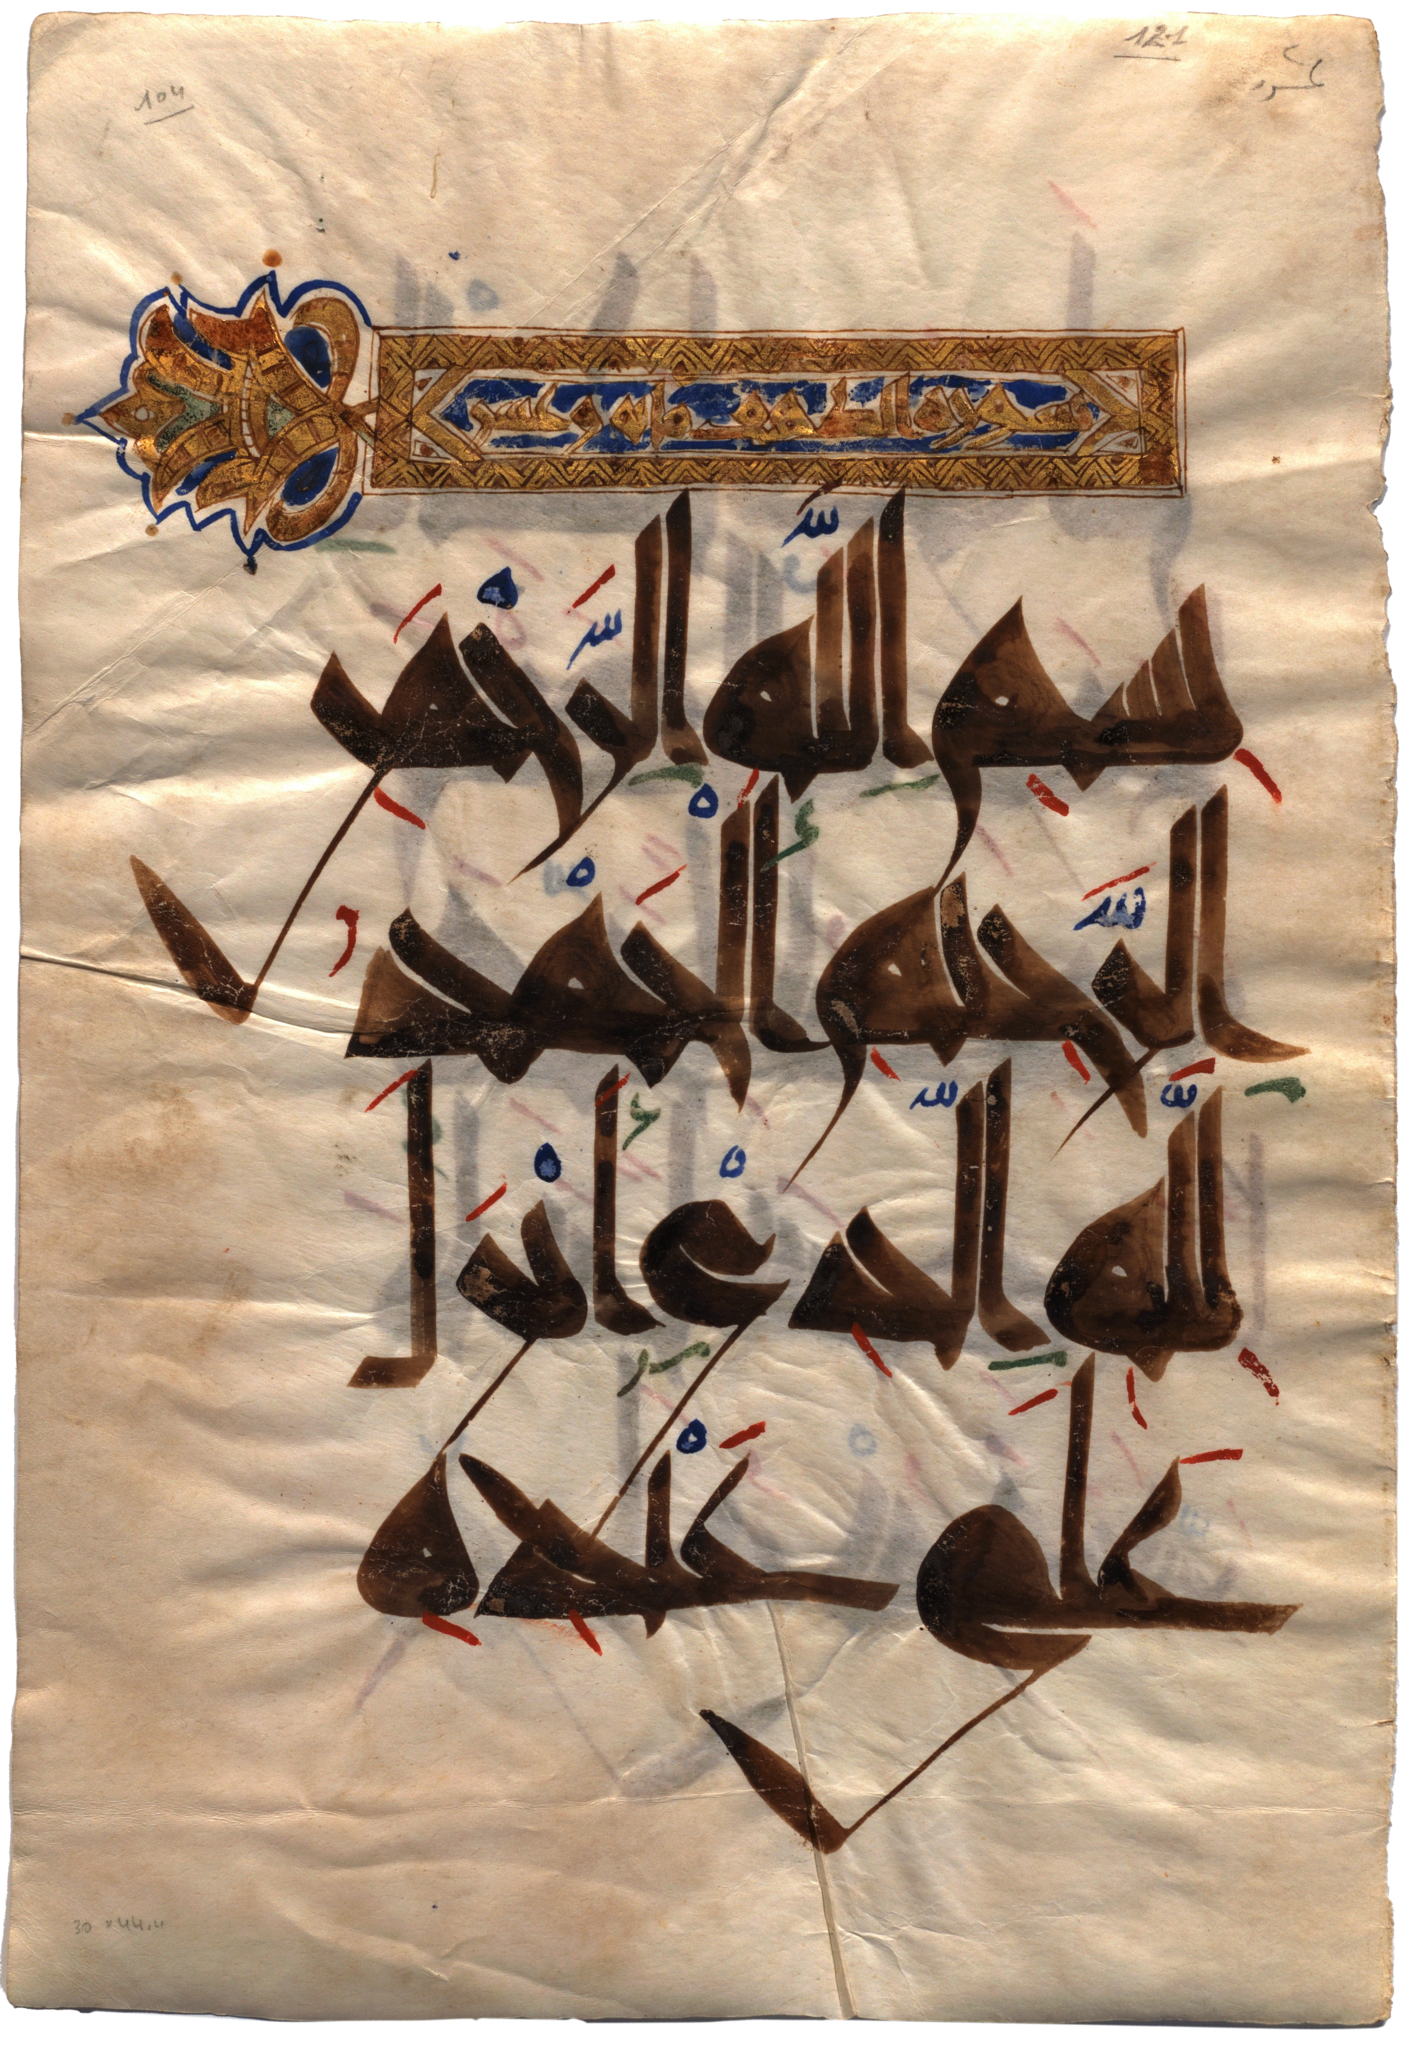 121
104
سورة الكهف مائة وخمس
بسم الله الرحمن
الرحيم الحمد
لله الذي أنزل
على عبده
30 x 44.4